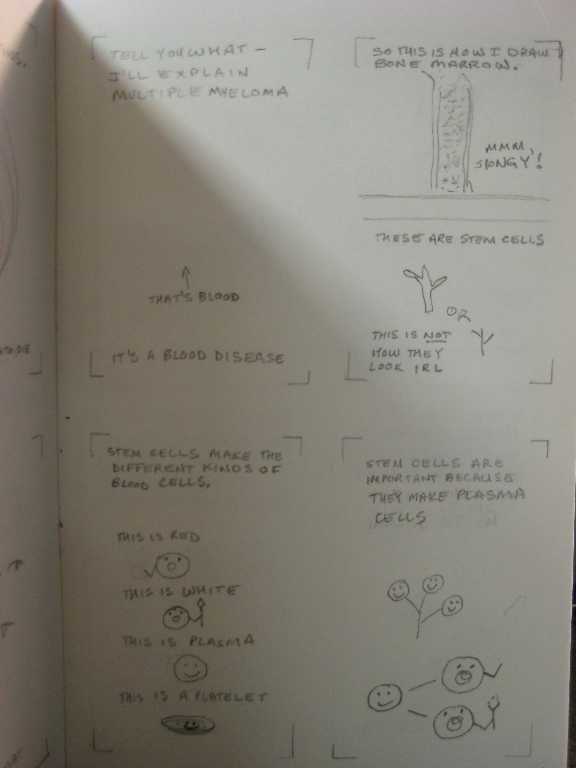 TELL YOU WHAT –
I'LL EXPLAIN
MULTIPLE MYELOMA
THAT'S BLOOD
IT'S A BLOOD DISEASE
SO THIS IS HOW I DRAW
BONE MARROW.
MMM,
SPONGY!
THESE ARE STEM CELLS
OR
THIS IS NOT
HOW THEY
LOOK IRL
STEM CELLS MAKE THE
DIFFERENT KINDS OF
BLOOD CELLS.
THIS IS RED
THIS IS WHITE
THIS IS PLASMA
THIS IS A PLATELET
STEM CELLS ARE
IMPORTANT BECAUSE
THEY MAKE PLASMA
CELLS